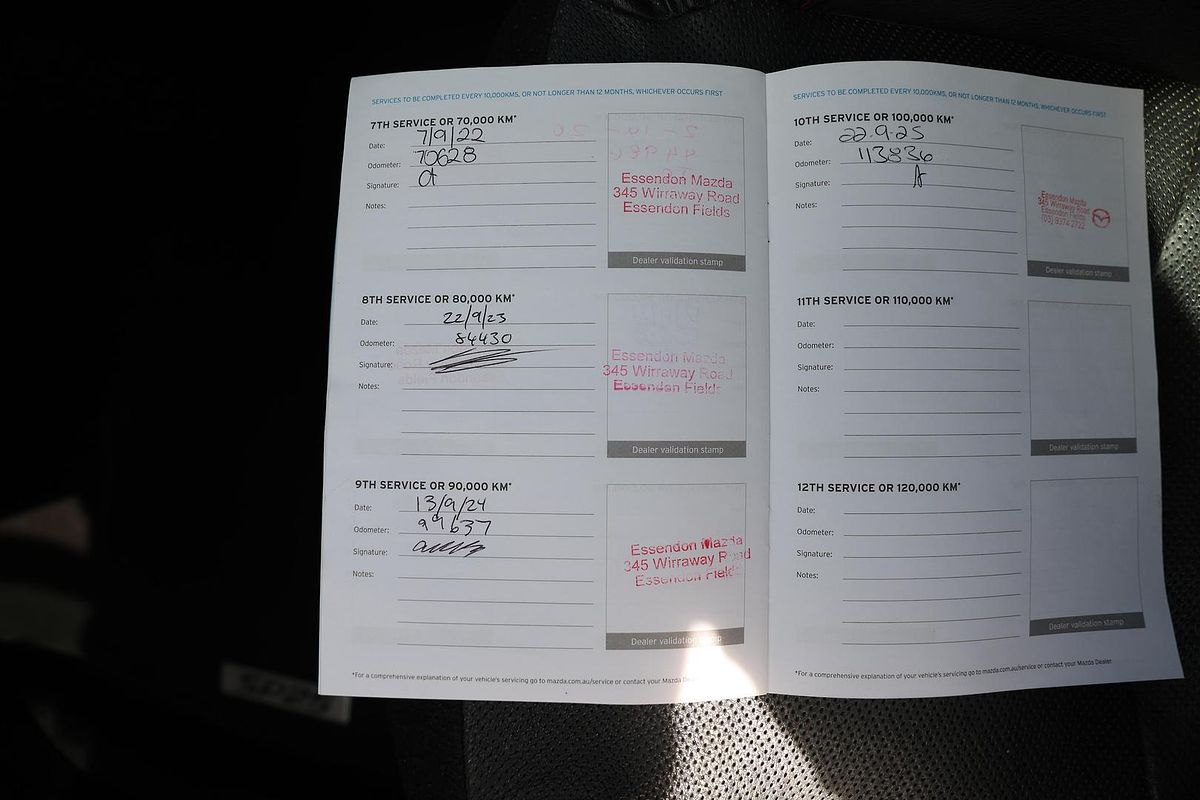 SERVICES TO BE COMPLETED EVERY 10,000KMS, OR NOT LONGER THAN 12 MONTHS, WHICHEVER OCCURS FIRST
7TH SERVICE OR 70,000 KM*
Date: 7/9/22
Odometer: 70628
Signature:
Notes:
Essendon Mazda
345 Wirraway Road
Essendon Fields
Dealer validation stamp
8TH SERVICE OR 80,000 KM*
Date: 22/9/23
Odometer: 84430
Signature:
Notes:
Essendon Mazda
345 Wirraway Road
Essendon Fields
Dealer validation stamp
9TH SERVICE OR 90,000 KM*
Date: 13/9/24
Odometer: 99637
Signature:
Notes:
Essendon Mazda
345 Wirraway Road
Essendon Fields
Dealer validation stamp
*For a comprehensive explanation of your vehicle's servicing go to mazda.com.au/service or contact your Mazda
SERVICES TO BE COMPLETED EVERY 10,000KMS, OR NOT LONGER THAN 12 MONTHS, WHICHEVER OCCURS FIRST
10TH SERVICE OR 100,000 KM*
Date: 22.9.25
Odometer: 113836
Signature:
Notes:
Essendon Mazda
345 Wirraway Road
Essendon Fields
(03) 9374 2722
Dealer validation stamp
11TH SERVICE OR 110,000 KM*
Date:
Odometer:
Signature:
Notes:
Dealer validation stamp
12TH SERVICE OR 120,000 KM*
Date:
Odometer:
Signature:
Notes:
Dealer validation stamp
*For a comprehensive explanation of your vehicle's servicing go to mazda.com.au/service or contact your Mazda Dealer.